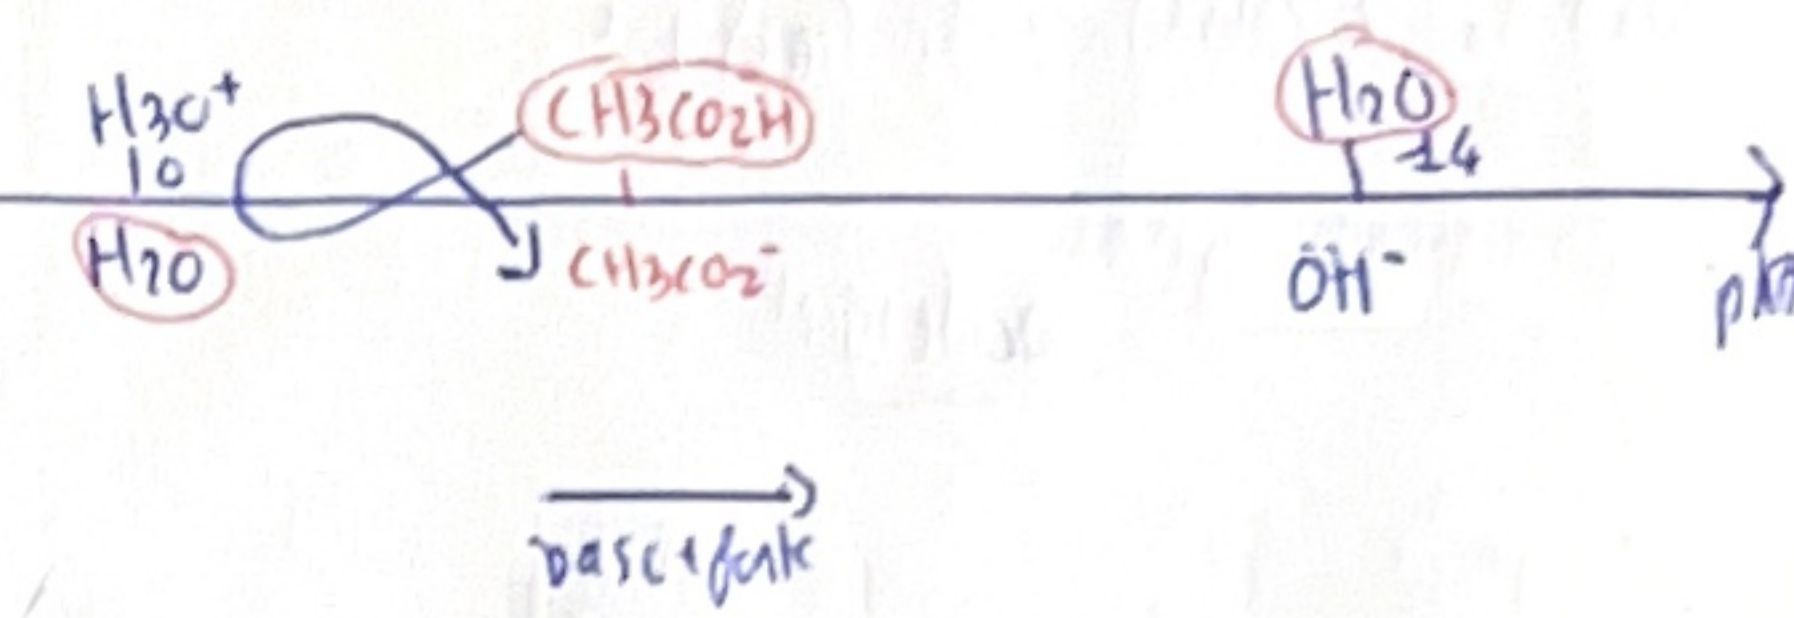 H3O+
CH3CO2H
H2O
0
14
H2O
CH3CO2-
OH-
base + forte